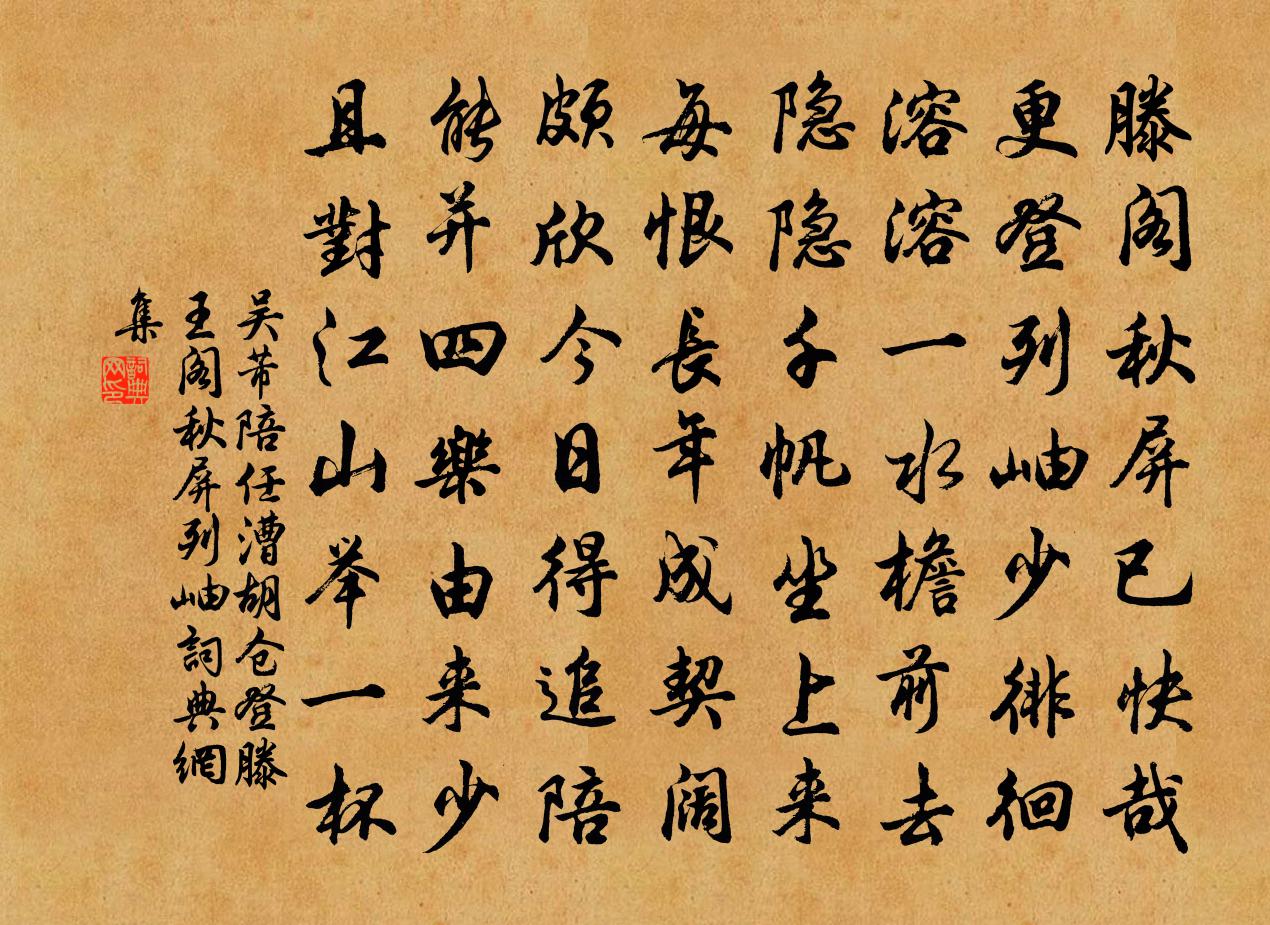 滕阁秋屏已快哉
更登列岫少徘徊
溶溶一水檐前去
隐隐千帆坐上来
每恨長年成契阔
頗欣今日得追陪
能并四樂由来少
且對江山举一杯
吴芾陪任漕胡仓登滕
王阁秋屏列岫詞典網
集
詞典网印